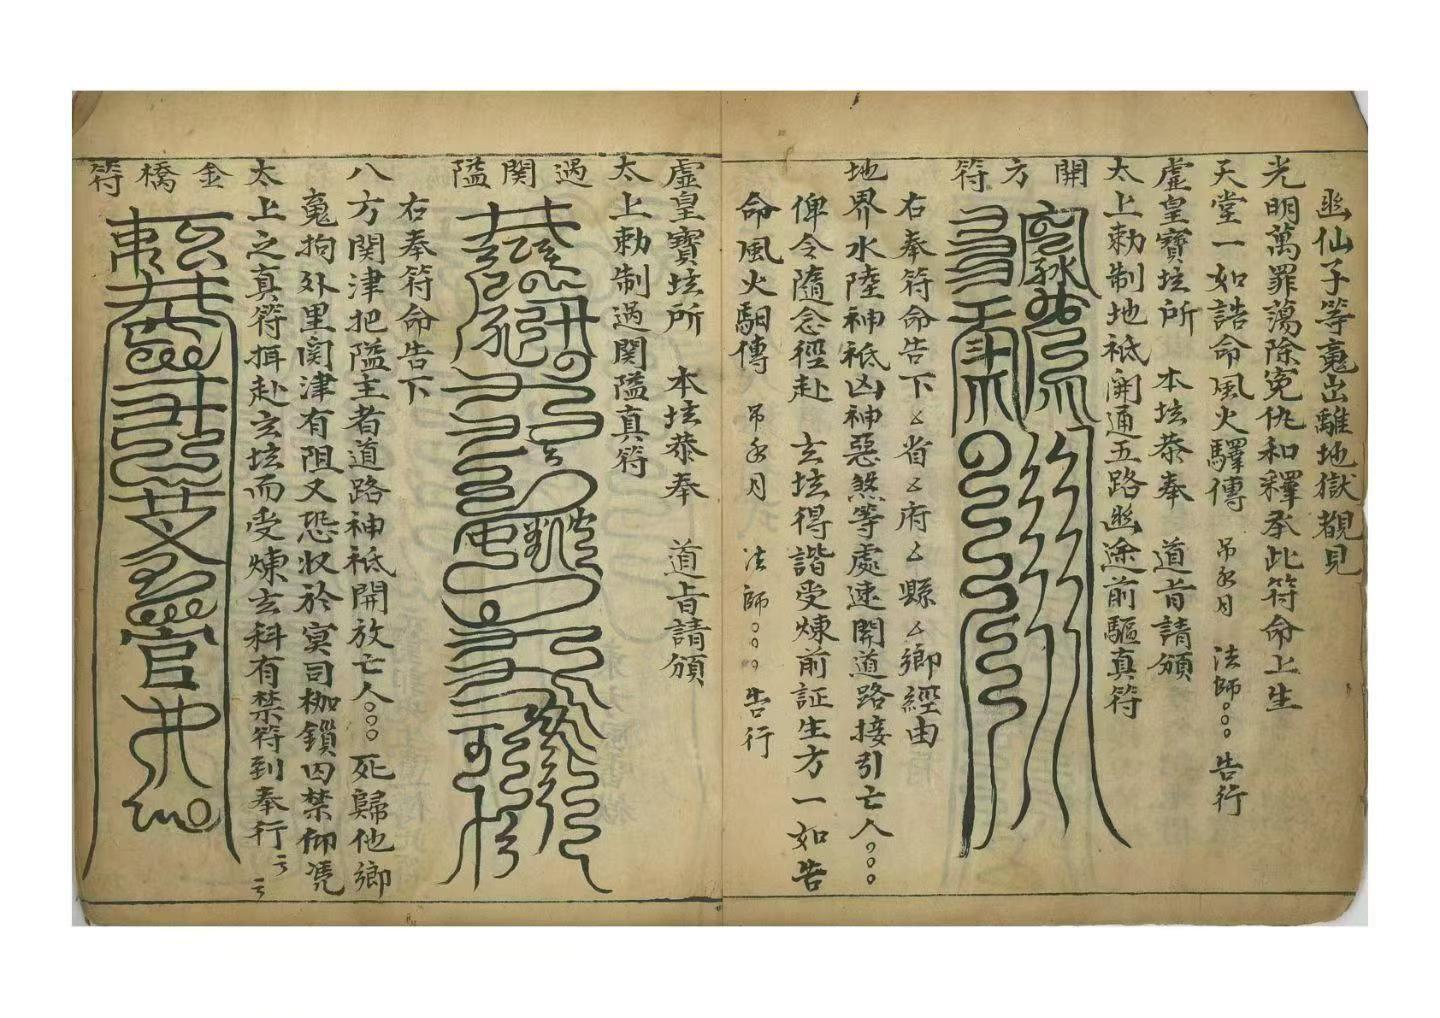 幽仙子等䰟出離地獄覩見
光明萬罪蕩除寃仇和釋承此符命上生
天堂一如誥命風火驛傳 年月 法師。。。告行
虛皇寶坛所 本坛恭奉 道旨請頒
太上勅制地祇開通五路幽途前驅真符
開方符
右奉符命告下厶省厶府厶縣厶鄉經由
地界水陸神祇凶神惡煞等處速開道路接引亡人。。。
俾令隨念徑赴 玄坛得諧受煉前証生方一如告
命風火馹傳 年月 法師。。。告行
虛皇寶坛所 本坛恭奉 道旨請頒
太上勅制過関隘真符
過関隘
右奉符命告下
八方関津把隘主者道路神祇開放亡人。。。死歸他鄉
䰟拘外里関津有阻又恐收於冥司枷鎖囚禁仰凴
太上之真符拜赴玄坛而受煉玄科有禁符到奉行云云
金橋符